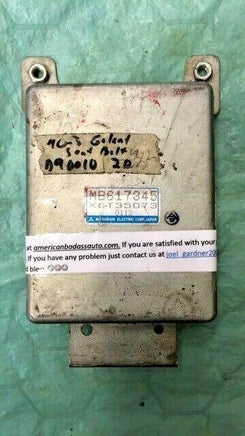 90-3 Galant
Seat Belt
A90010 20
MB617345
X6T35073
MITSUBISHI ELECTRIC CORP. JAPAN
at americanbadassauto.com. If you are satisfied with your
If you have any problem just contact us at joel_gardner20
d ble